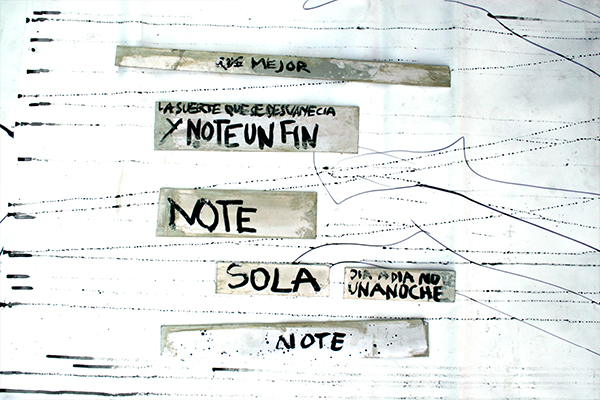 MEJOR
LA SUERTE QUE SE DESVANECIA
Y NOTE UN FIN
NOTE
SOLA
DIA A DIA NO
UNA NOCHE
NOTE